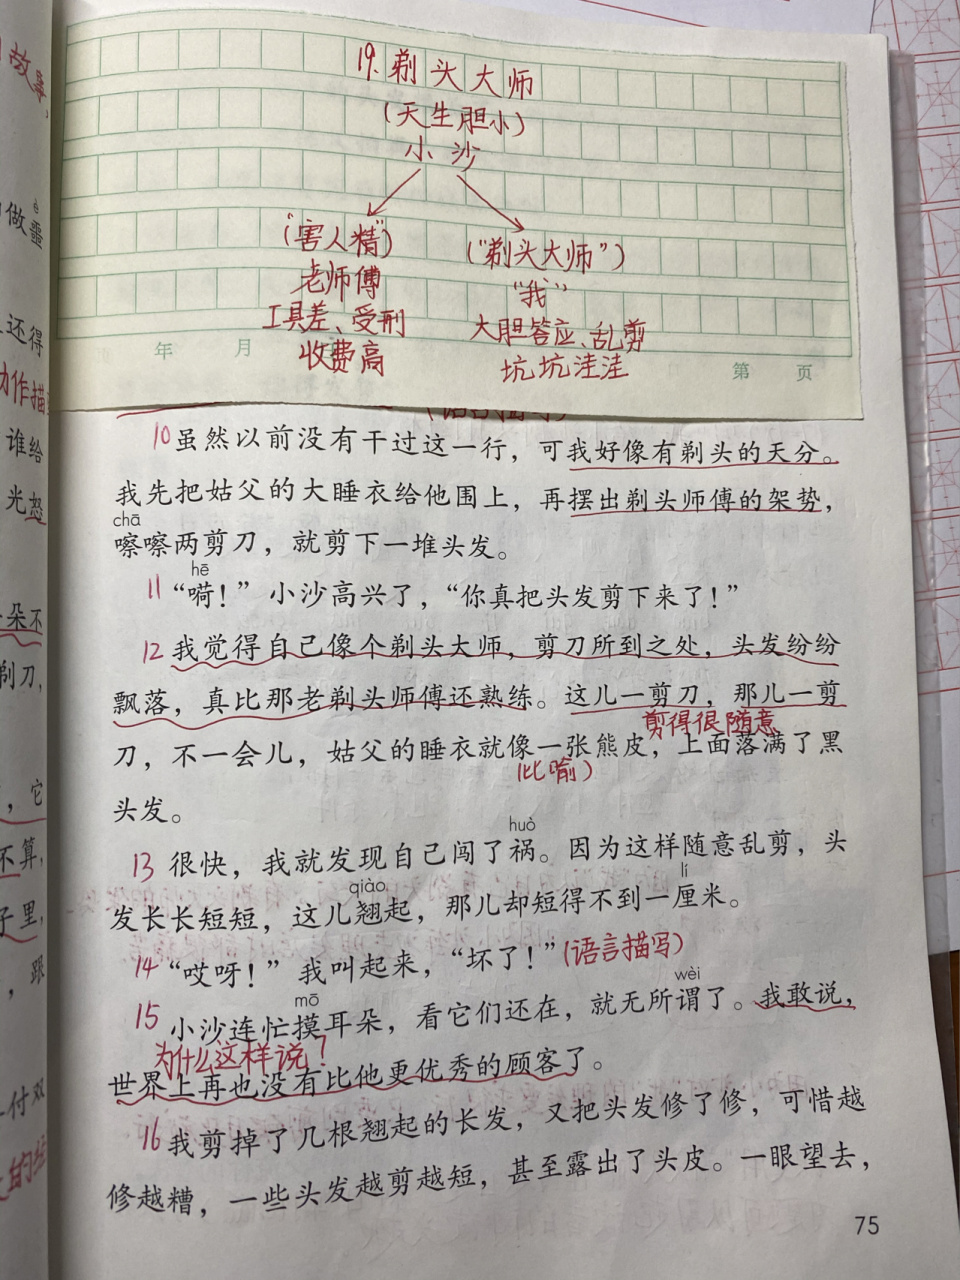 故事,
19.剃头大师
(天生胆小)
小沙
(“害人精”) (“剃头大师”)
老师傅 “我”
工具差、受刑 大胆答应、乱剪
收费高 坑坑洼洼
年 月 第 页
做噩
è
还得
动作描
谁给
光怒
朵不
剃刀,
,它
不算,
子里,
,跟
付双
10虽然以前没有干过这一行，可我好像有剃头的天分。
我先把姑父的大睡衣给他围上，再摆出剃头师傅的架势，
chā
嚓嚓两剪刀，就剪下一堆头发。
hē
11“嗬！”小沙高兴了，“你真把头发剪下来了！”
12 我觉得自己像个剃头大师，剪刀所到之处，头发纷纷
飘落，真比那老剃头师傅还熟练。这儿一剪刀，那儿一剪
剪得很随意
刀，不一会儿，姑父的睡衣就像一张熊皮，上面落满了黑
(比喻)
头发。
huò
13 很快，我就发现自己闯了祸。因为这样随意乱剪，头
qiào lí
发长长短短，这儿翘起，那儿却短得不到一厘米。
14“哎呀！”我叫起来，“坏了！”(语言描写)
mō wèi
15 小沙连忙摸耳朵，看它们还在，就无所谓了。我敢说，
为什么这样说?
世界上再也没有比他更优秀的顾客了。
16 我剪掉了几根翘起的长发，又把头发修了修，可惜越
修越糟，一些头发越剪越短，甚至露出了头皮。一眼望去，
75